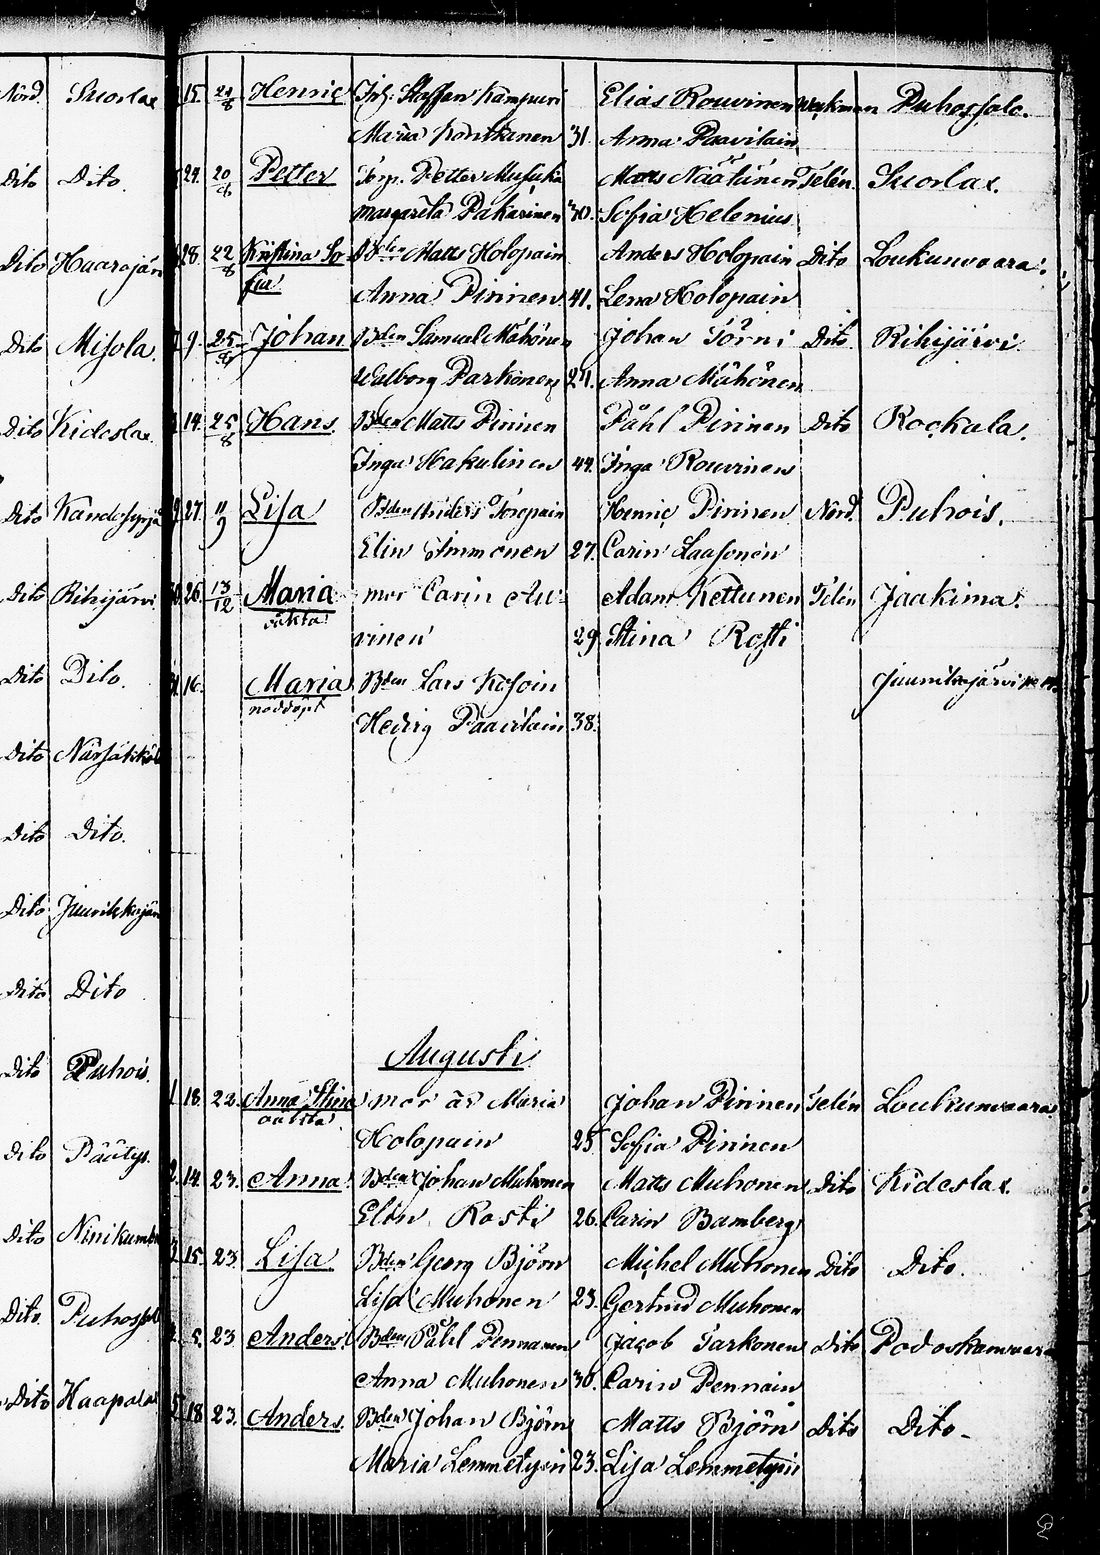 Nord. Suorlax
Dito Dito.
Dito Haarajär
Dito Misola.
Dito Kideslax
Dito
Dito Rihijärvi
Dito Dito.
Dito
Dito Dito.
Dito
Dito Dito
Dito Puhois.
Dito
Dito
Dito
Dito Haapala
15. 24/8 Henric Staffan Kämpuri Elias Rouvinen Puhossalo.
Maria Kontkanen 31. Anna Paavilain
29. 20/8 Petter Petter Mats Näätänen Telén. Suorlax.
Margareta Pakarinen 30. Sofia Helenius
28. 22/8 Kristina So- Bden Matts Holopain Anders Holopain Dito Loukunvaara.
fia Anna Pirinen 41. Lena Holopain
9. 25/8 Johan Bden Samuel Mähönen Johan Törni Dito Rihijärvi.
Walborg Parkonen 24. Anna Mähönen
14. 25/8 Hans. Bden Matts Pirinen Påhl Pirinen Dito Rockala.
Inga Hakulinen 44. Inga Rouvinen
27. 11/9 Lisa Bden Anders Henric Pirinen Nord. Puhois.
Elin Immonen 27. Carin Laasonen
26. 13/12 Maria mor Carin Au- Adam Kettunen Telén Jaakima.
oäkta vinen 29. Stina Rosti
16. Maria Bden Lars Kosoin Juurikajärvi
nöddöpt Hedvig Paavilain 38.
Augusti
1. 18. 22. Anna Stina mor är Maria Johan Pirinen Telén Loukunvaara
oäkta Holopain 25. Sofia Pirinen
2. 14. 23. Anna Bden Johan Muhonen Matts Muhonen Dito Kideslax.
Elin Rosti 26. Carin Bamberg
3. 15. 23. Lisa Bden Georg Björn Michel Muhonen Dito Dito.
Lisa Muhonen 23. Gertrud Muhonen
4. 5. 23. Anders Bden Påhl Pennanen Jacob Tarkonen Dito
Anna Muhonen 30. Carin Pennain
5. 18. 23. Anders. Bden Johan Björn Matts Björn Dito Dito.
Maria Lemmetyin 23. Lisa Lemmetyin